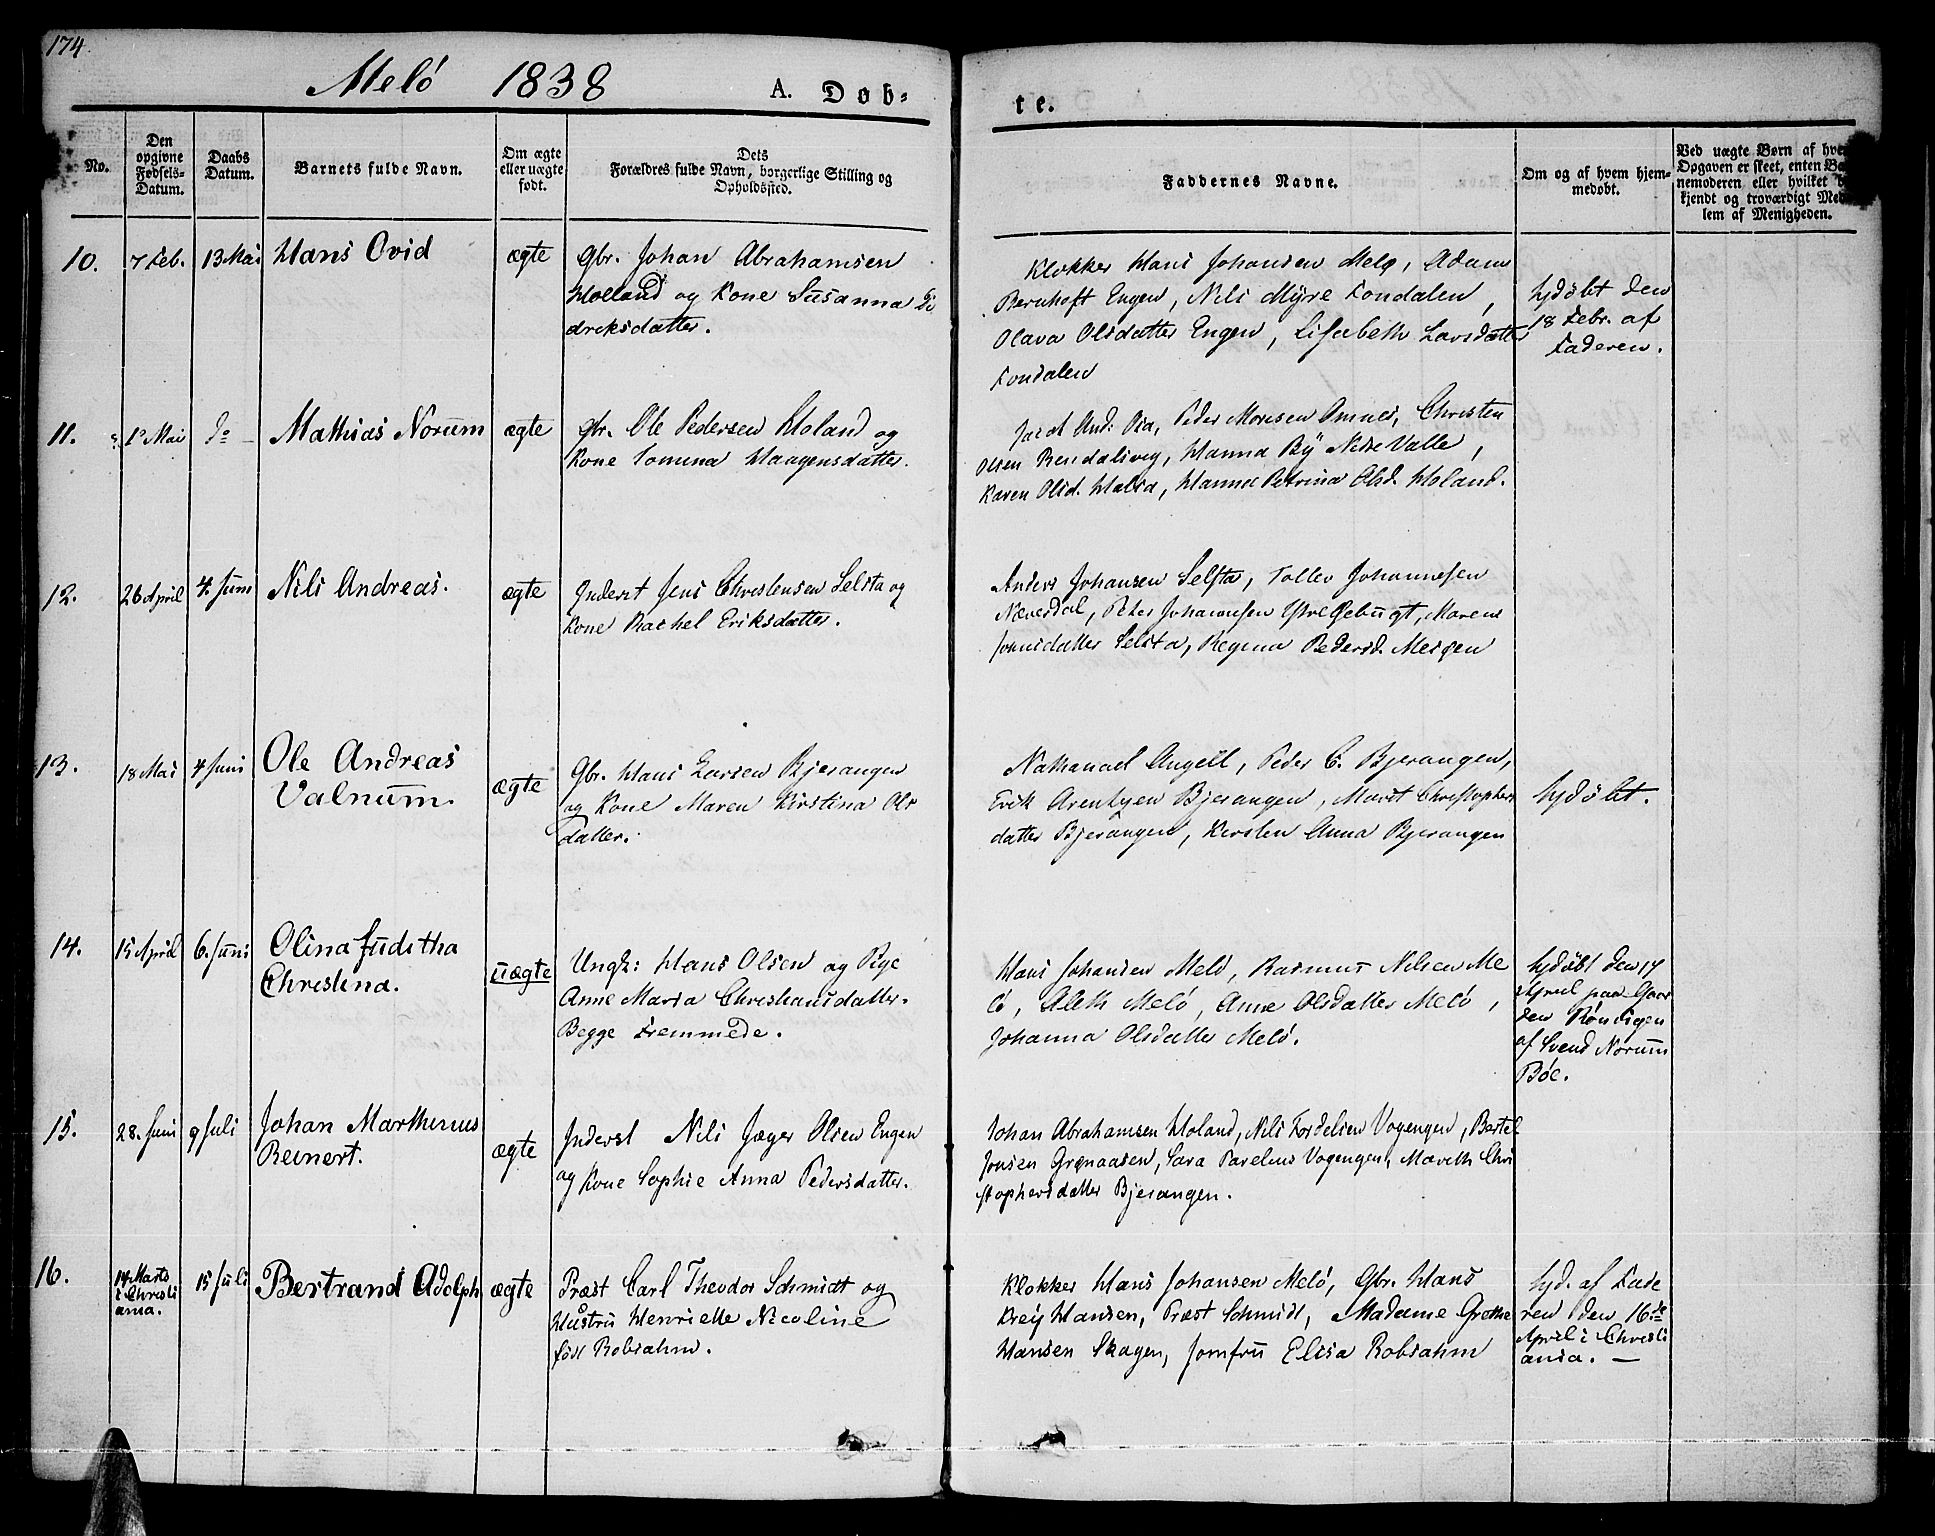 174.
Melö 1838 A. Døb-
te.
No.
Den
opgivne
Fødsels-
Datum.
Daabs
Datum.
Barnets fulde Navn.
Om ægte
eller uægte
født.
Dets
Forældres fulde Navn, borgerlige Stilling og
Opholdssted.
Faddernes Navne.
Om og af hvem hjem-
medøbt.
Ved uægte Børn af hvem
Opgaven er skeet, enten Bar
nemoderen eller hvilket be
kjendt og troværdigt Med
lem af Menigheden.
10.
7 Feb.
13 Mai
Hans Ovid
ægte
Gbr. Johan Abrahamsen
Holland og Kone Susanna Di
driksdatter.
Klokker Hans Johansen Melø, Adam
Bernhoft Engen, Nils Myre Fondalen,
Olava Olsdatter Engen, Lisabeth Larsdatter
Fondalen
hjdöbt den
18 Febr. af
Faderen.
11.
1 Mai
do
Mathias Norum
ægte
gbr. Ole Pedersen Holand og
Kone Tomina Haagensdatter.
And. Peder Mortsen Omnes, Christen
Olsen Rendalsvig, Hanna By Nedre Valle,
Karen Olsd. Halsa, Hanna Petrina Olsd. Holand.
12.
26 April
4 Juni
Nils Andreas.
ægte
Inderst Jens Christensen Selsta og
Kone Rachel Eriksdatter.
Anders Johansen Selsta, Tollev Johannesen
Nævesdal, Peter Johannesen Maren
Jonsdatter Selsta, Regina Pedersd. Meisen
13.
18 Mai
4 Juni
Ole Andreas
Valnum.
ægte
Gbr. Hans Larsen Bjerangen
og Kone Maren Kirstina Ols
datter.
Nathanael Angell, Peder C. Bjerangen,
Erik Arentsen Bjerangen, Marit Christophers
datter Bjerangen, Kirsten Anna Bjerangen
hjdöbt.
14.
15 April
6. Juni
Olina Juditha
Christina.
uægte
Ungk: Hans Olsen og Pige
Anne Maria Christiansdatter.
Begge Fremmede.
Hans Johansen Melö, Rasmus Nilsen Me
lö, Aleth Melö, Anne Olsdatter Melö,
Johanna Olsdatter Melö.
hjdöbt den 17
April paa Gaar
den Röndigen
af Svend Norum
Böe.
15.
28. Juni
9 Juli
Johan Marthinus
Reinert.
ægte
Inderst Nils Jæger Olsen Engen
og Kone Sophie Anna Pedersdatter.
Johan Abrahamsen Holand, Nils Fordelsen Vogengen, Bertel
Jonsen Grønaasen, Sara Parelius Vogengen, Mareth Chri
stophersdatter Bjerangen.
16.
14 Marts
i Christi
ania.
15 Juli
Bertrand Adolph
ægte
Præst Carl Theodor Schmidt og
Hustru Henriette Nicoline
föd Robsahm.
Klokker Hans Johansen Melö, Gbr. Hans
Krey Hansen, Præst Schmidt, Madame Grethe
Hansen Skagen, Jomfru Elisa Robsahm
hjd. af Fade
ren den 16de
April i Christi
ania. —